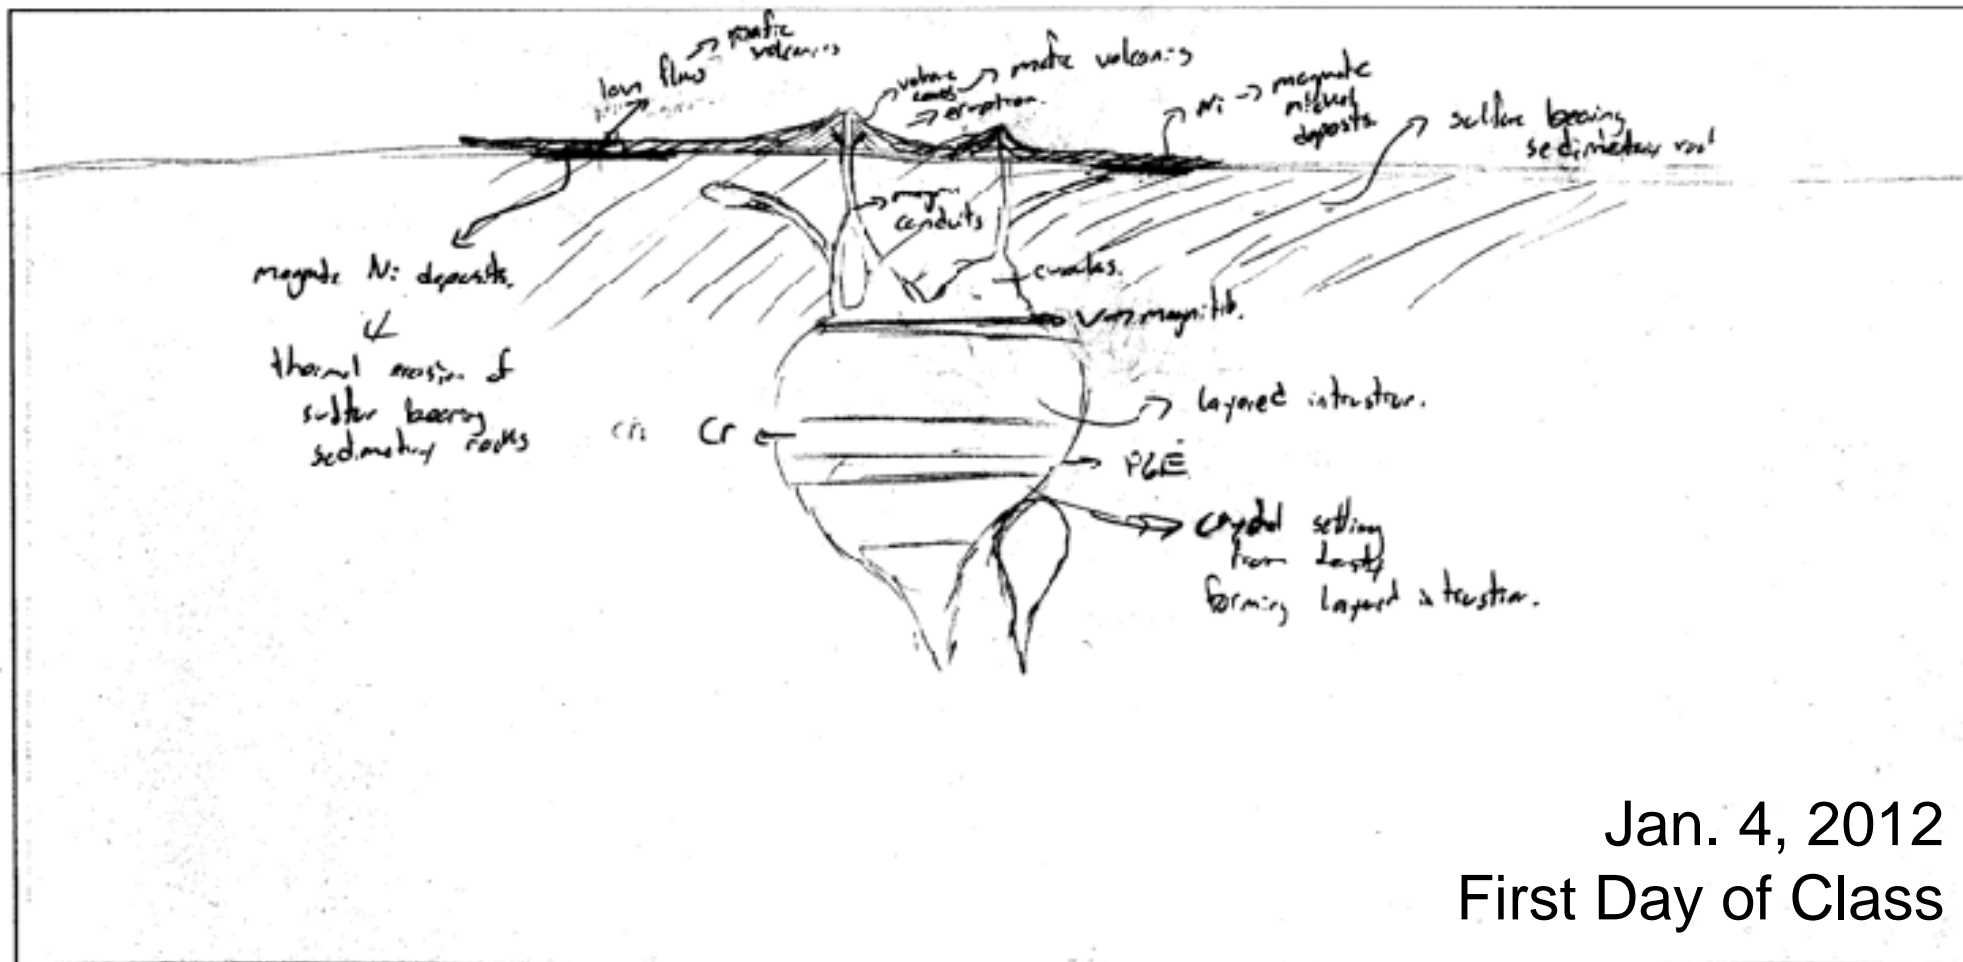 mafic
volcanics
lava flows
mafic volcanics
eruption.
Ni → magmatic
nickel
deposits.
sulfur bearing
sedimentary rock
magma
conduits
magmatic Ni deposits.
thermal erosion of
sulfur bearing
sedimentary rocks
cumulus.
magnitite.
layered intrustion.
Cr
PGE
crystal settling
from density
forming layered intrustion.
Jan. 4, 2012
First Day of Class